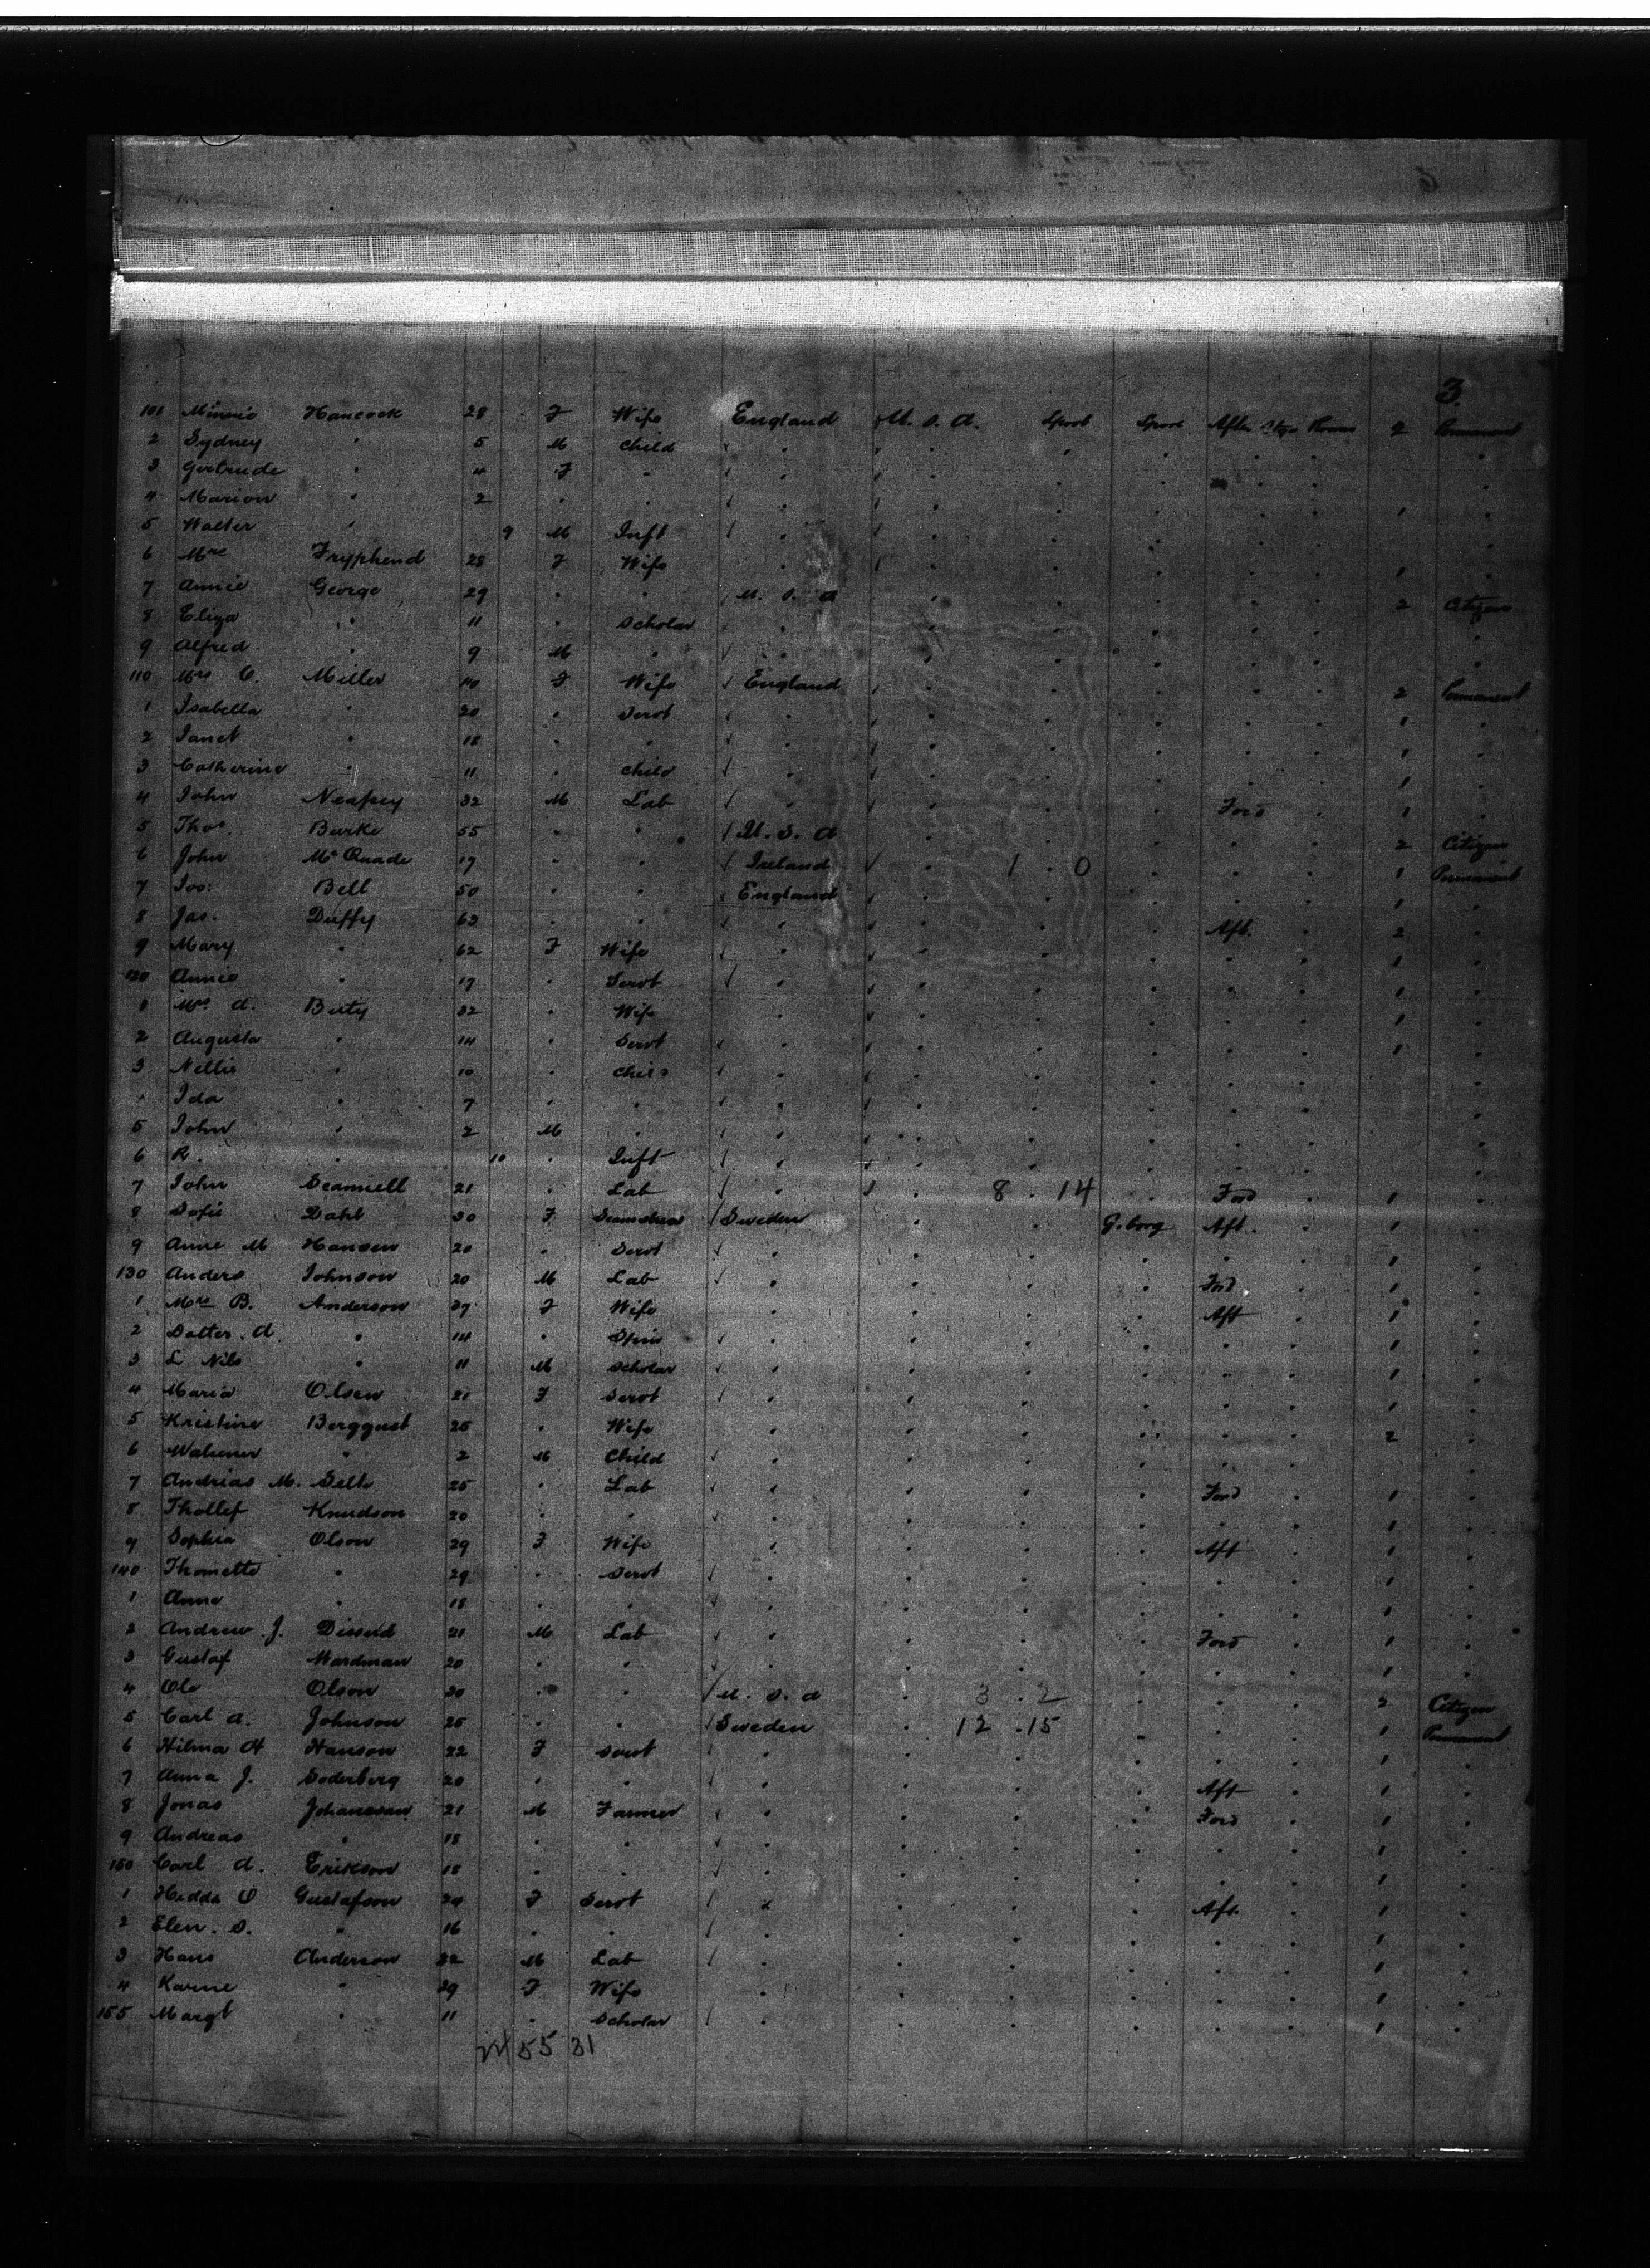 3.
101 Minnie Hancock 28 F Wife England U. S. A. Lpool Lpool After Stge Room 2 Permanent
2 Sydney " 5 M Child
3 Gertrude " 4 F "
4 Marion " 2 " "
5 Walter " 9 M Inft
6 Mrs Fryphend 28 F Wife 1
7 Annie George 29 " " U. S. A 2 Citizen
8 Eliza " 11 " Scholar
9 Alfred " 9 M "
110 Mrs C. Miller 40 F Wife England 2 Permanent
1 Isabella " 20 " Servt 1
2 Janet " 18 " " 1
3 Catherine " 11 " Child 1
4 John Neafsey 32 M Lab Ford 1
5 Thos. Burke 55 " " U. S. A 2 Citizen
6 John Mc Quade 17 " " Ireland 1 . 0 1 Permanent
7 Jos: Bell 50 " " England 1
8 Jas. Duffy 63 " " Aft. 2
9 Mary " 62 F Wife 1
120 Annie " 17 " Servt 1
1 Mrs A. Buty 32 " Wife 1
2 Augusta " 14 " Servt 1
3 Nellie " 10 " Child
Ida " 7 " "
5 John " 2 M "
6 R. " 10 " Inft
7 John Scannell 21 " Lab 8 . 14 Ford 1
8 Sofie Dahl 30 F Seamstress Sweden G.borg Aft. 1
9 Anne M Hansen 20 " Servt 1
130 Anders Johnson 20 M Lab Ford 1
1 Mrs B. Anderson 37 F Wife Aft 1
2 Dotter. A. " 14 " Spin 1
3 L Nils " 11 M Scholar 1
4 Maria Olsen 21 F Servt 1
5 Kristine Bergqust 25 " Wife 2
6 " 2 M Child
7 Andrias M. Selt 25 " Lab Ford 1
8 Thollef Knudson 20 " " 1
9 Sophia Olson 29 F Wife Aft 1
140 Thomette " 29 " Servt 1
1 Anna " 18 " " 1
2 Andrew J. 21 M Lab Ford 1
3 Gustaf Wardman 20 " " 1
4 Ole Olson 30 " " U. S. A 3 . 2 2 Citizen
5 Carl A. Johnson 25 " " Sweden 12 . 15 1 Permanent
6 Hilma H Hanson 22 F Servt 1
7 Anna J. Soderberg 20 " " Aft 1
8 Jonas Johansson 21 M Farmer Ford 1
9 Andreas " 18 " " 1
150 Carl A. Erikson 18 " " 1
1 Hedda O Gustafson 24 F Servt Aft. 1
2 Elen. S. " 16 " " 1
3 Hans Anderson 32 M Lab 1
4 Karine " 29 F Wife 1
155 Margt " 11 " Scholar 1
55 31